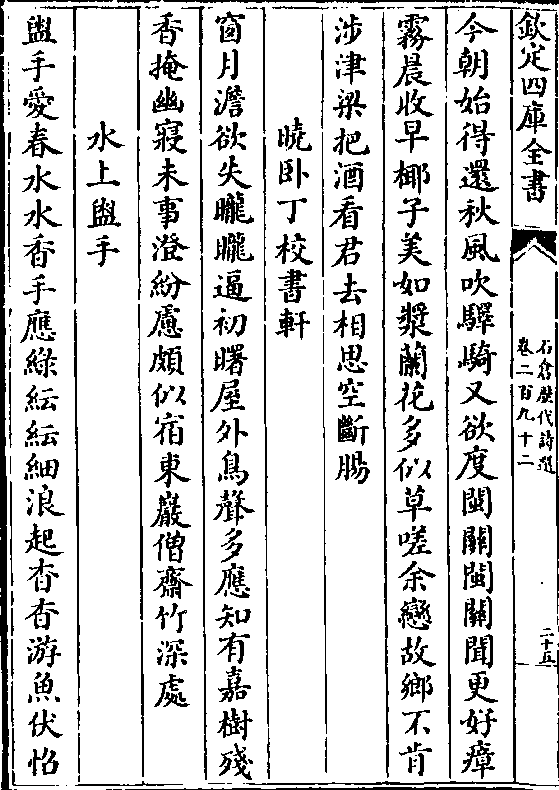 欽定四庫全書
石倉歷代詩選
卷二百九十二
二十五
今朝始得還秋風吹驛騎又欲度閩關閩關聞更好瘴
霧晨收早椰子美如漿蘭花多似草嗟余戀故鄉不肯
涉津梁把酒看君去相思空斷腸
曉卧丁校書軒
窗月澹欲失朧朧逼初曙屋外鳥聲多應知有嘉樹殘
香掩幽寢未事澄紛慮頗似宿東巖僧齋竹深處
水上盥手
盥手愛春水水香手應綠紜紜細浪起杳杳游魚伏怊